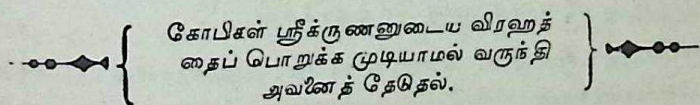 கோபிகள் ஸ்ரீக்ருணனுடைய விரஹத்
தைப் பொறுக்க முடியாமல் வருந்தி
அவனைத் தேடுதல்.